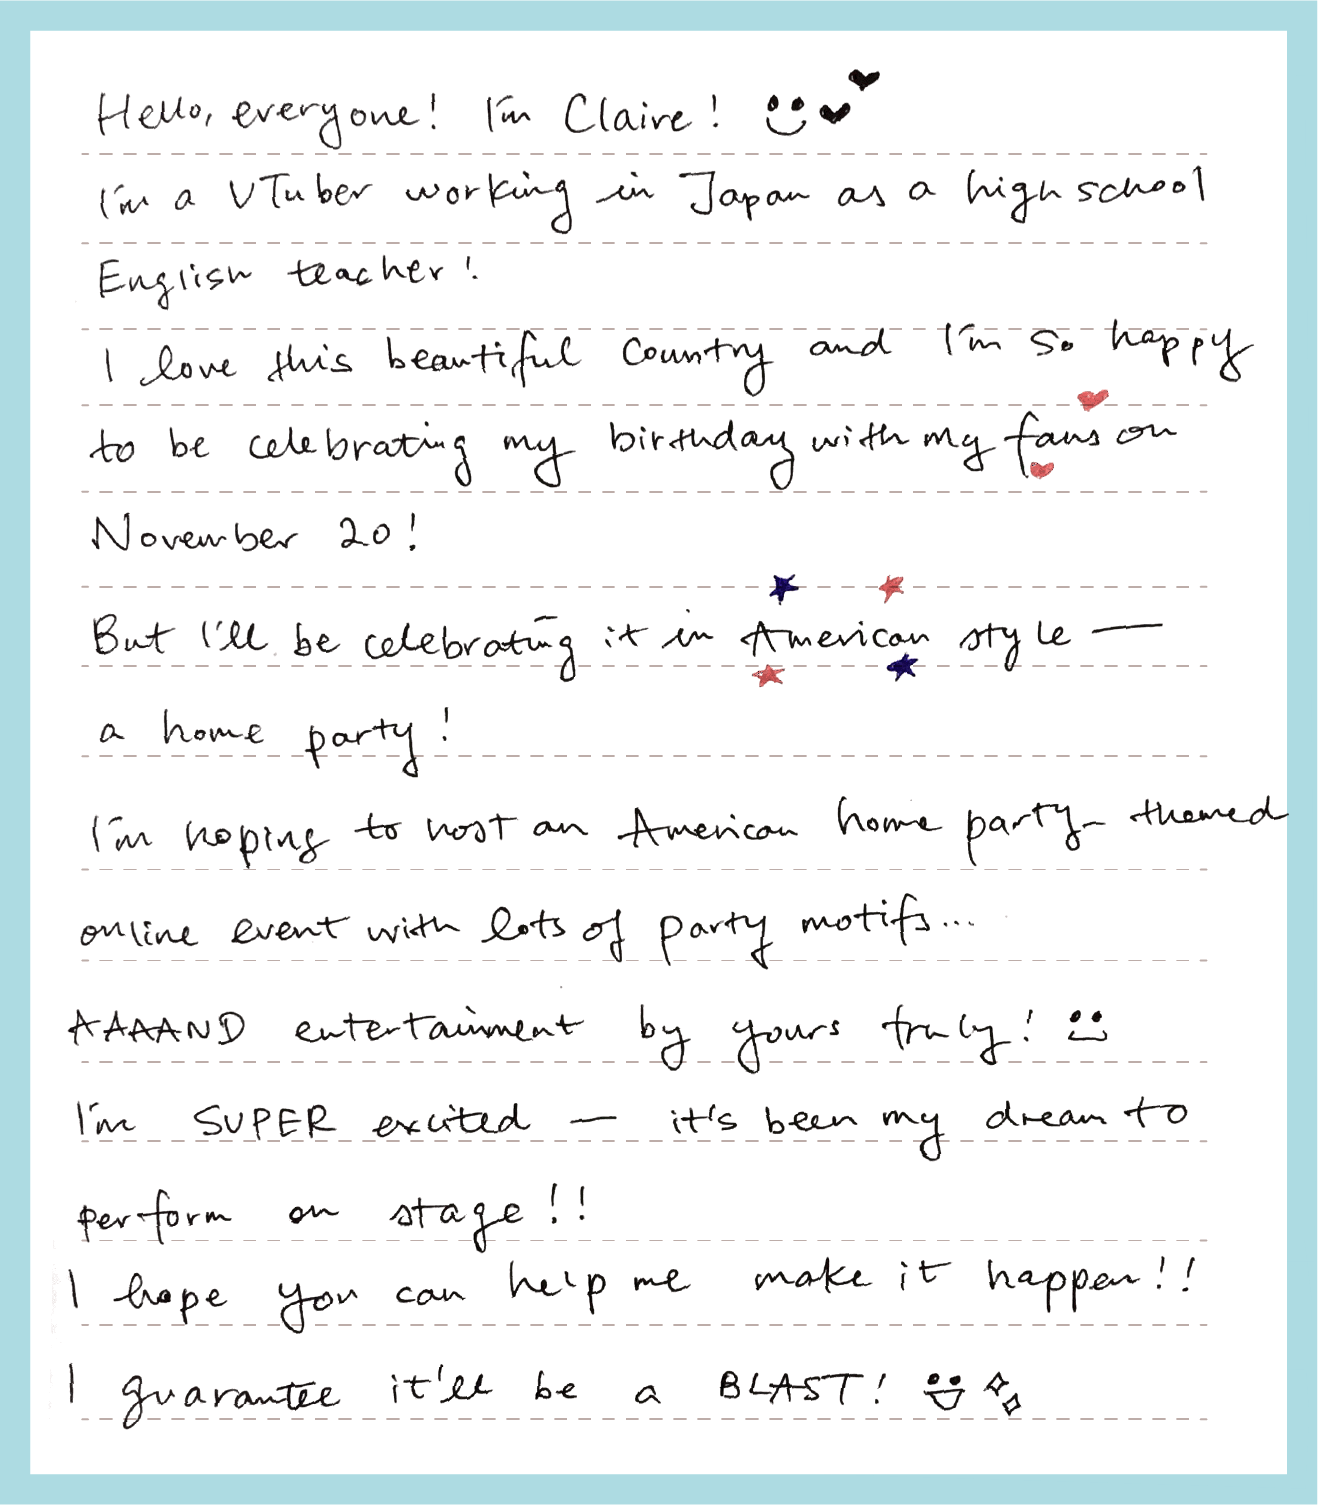 Hello, everyone! I'm Claire!
I'm a VTuber working in Japan as a high school
English teacher!
I love this beautiful country and I'm so happy
to be celebrating my birthday with my fans on
November 20!
But I'll be celebrating it in American style —
a home party!
I'm hoping to host an American home party-themed
online event with lots of party motifs...
AAAAND entertainment by yours truly!
I'm SUPER excited — it's been my dream to
perform on stage!!
I hope you can help me make it happen!!
I guarantee it'll be a BLAST!